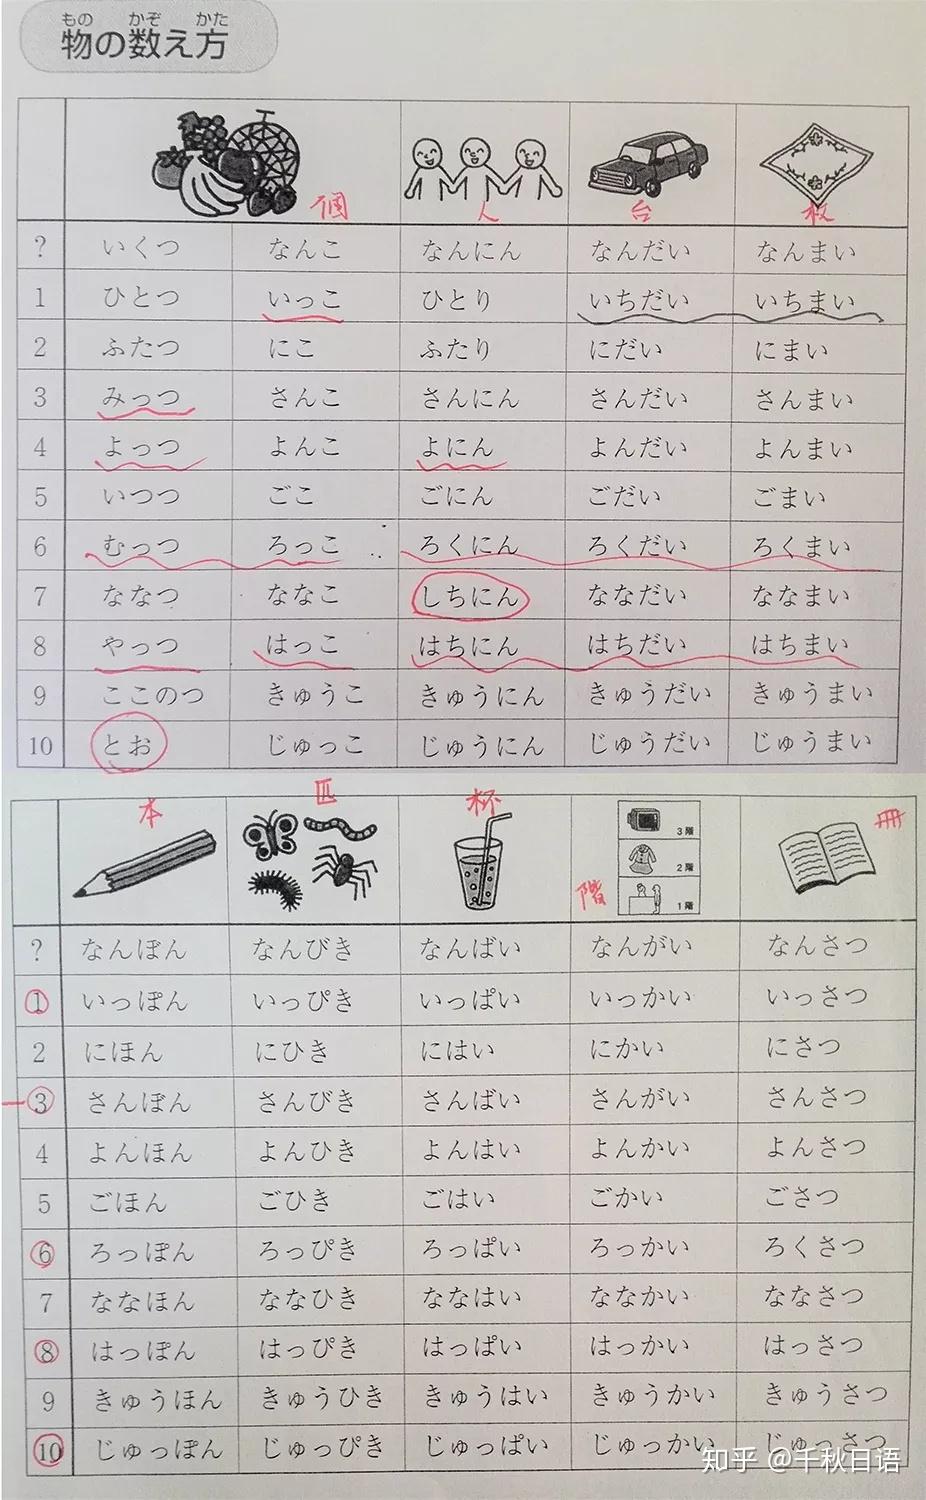 もの かぞ かた
物の数え方
個 人 台 枚
? いくつ なんこ なんにん なんだい なんまい
1 ひとつ いっこ ひとり いちだい いちまい
2 ふたつ にこ ふたり にだい にまい
3 みっつ さんこ さんにん さんだい さんまい
4 よっつ よんこ よにん よんだい よんまい
5 いつつ ごこ ごにん ごだい ごまい
6 むっつ ろっこ ろくにん ろくだい ろくまい
7 ななつ ななこ しちにん ななだい ななまい
8 やっつ はっこ はちにん はちだい はちまい
9 ここのつ きゅうこ きゅうにん きゅうだい きゅうまい
10 とお じゅっこ じゅうにん じゅうだい じゅうまい
本 匹 杯 階 冊
3階
2階
1階
? なんぼん なんびき なんばい なんがい なんさつ
1 いっぽん いっぴき いっぱい いっかい いっさつ
2 にほん にひき にはい にかい にさつ
3 さんぼん さんびき さんばい さんがい さんさつ
4 よんほん よんひき よんはい よんかい よんさつ
5 ごほん ごひき ごはい ごかい ごさつ
6 ろっぽん ろっぴき ろっぱい ろっかい ろくさつ
7 ななほん ななひき ななはい ななかい ななさつ
8 はっぽん はっぴき はっぱい はっかい はっさつ
9 きゅうほん きゅうひき きゅうはい きゅうかい きゅうさつ
10 じゅっぽん じゅっぴき じゅっぱい じゅっかい じゅっさつ
知乎 @千秋日语